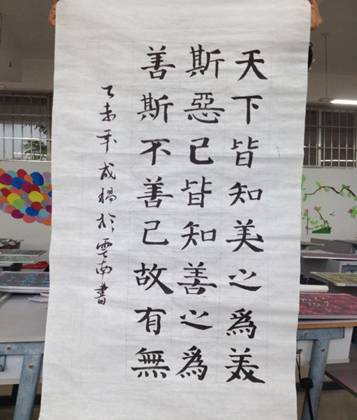 天下皆知美之為美
斯惡已皆知善之為
善斯不善已故有無
乙未年成楊於雲南書